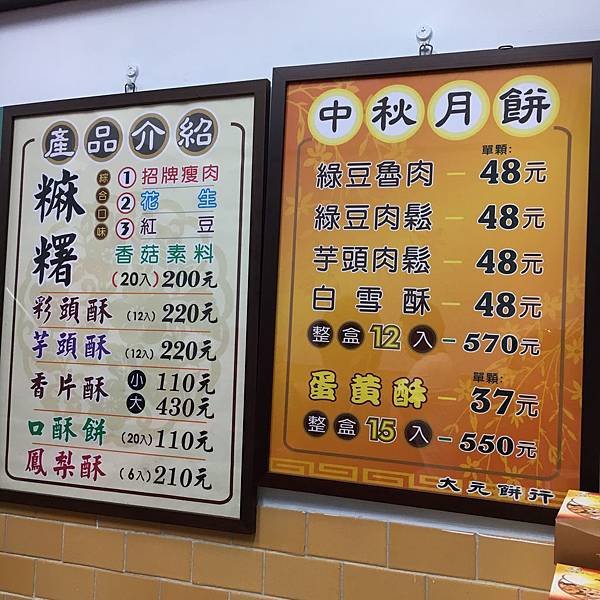 產品介紹
麻糬
綜合口味
①招牌瘦肉
②花生
③紅豆
香菇素料
(20入)200元
彩頭酥(12入)220元
芋頭酥(12入)220元
香片酥小110元
大430元
口酥餅(20入)110元
鳳梨酥(6入)210元
中秋月餅
單顆:
綠豆魯肉-48元
綠豆肉鬆-48元
芋頭肉鬆-48元
白雪酥-48元
整盒12入-570元
單顆:
蛋黃酥-37元
整盒15入-550元
大元餅行